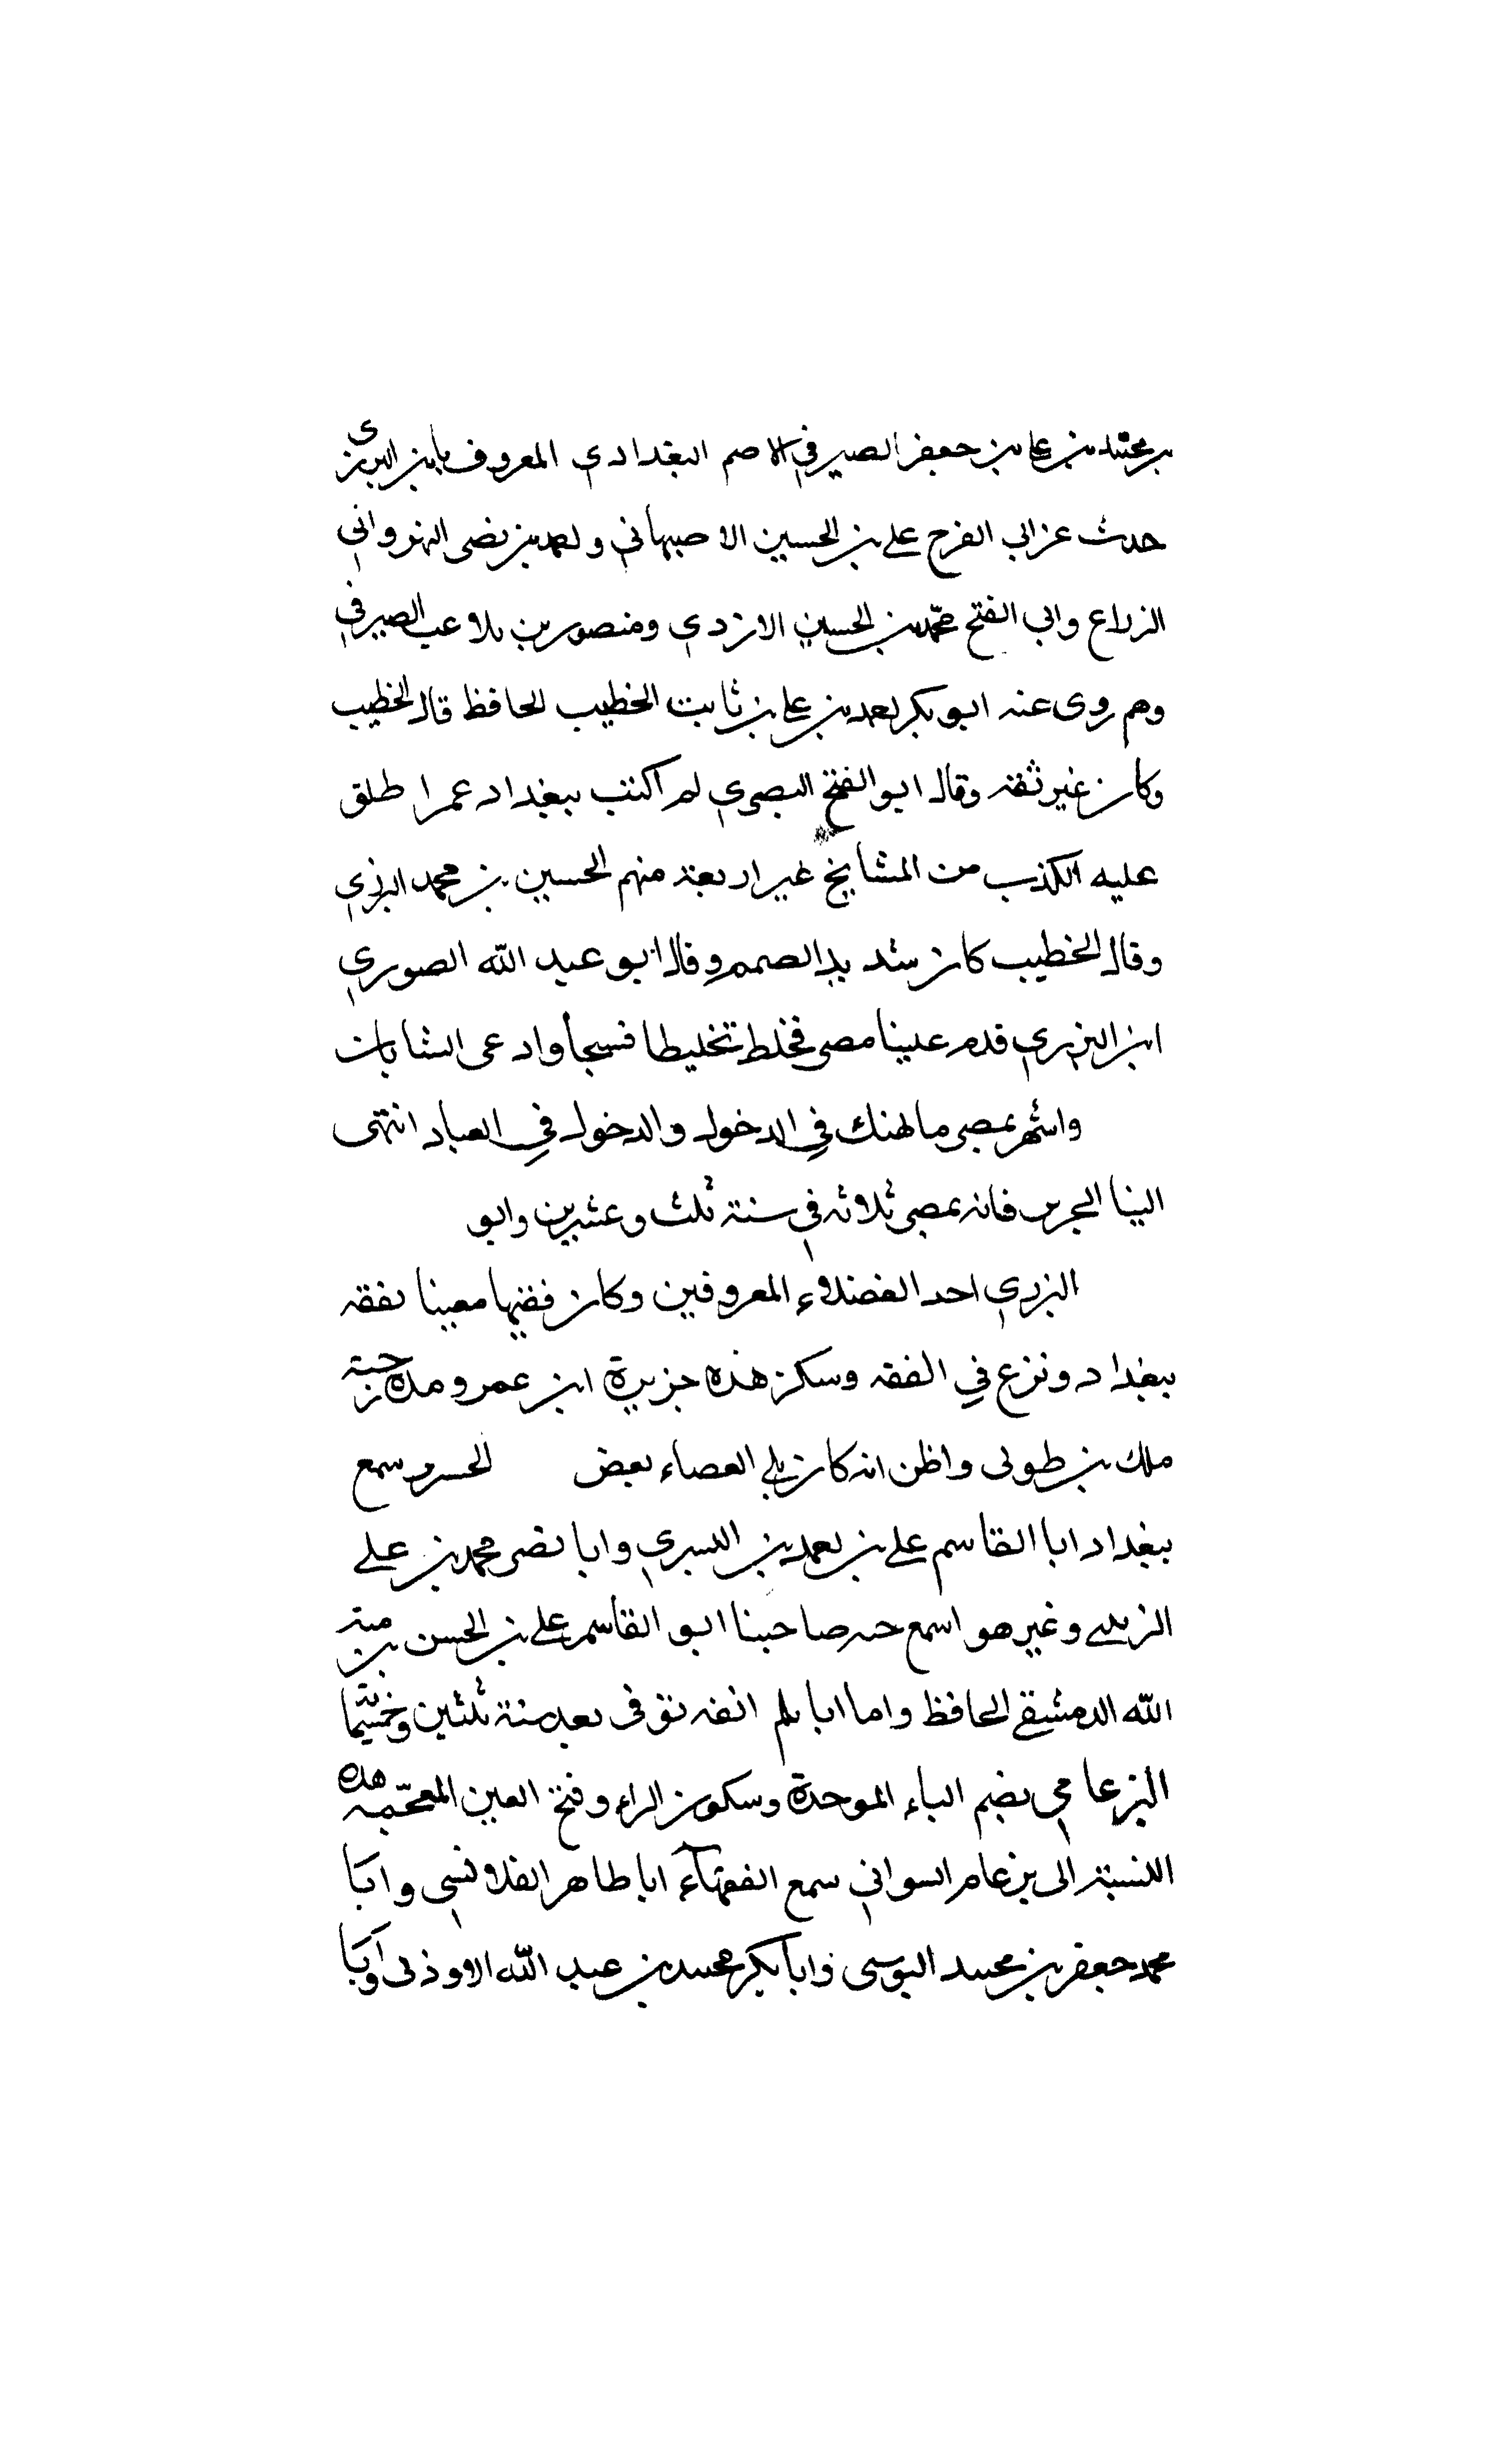 بن محمد بن علي بن جعفر الصيرفي الاصم البغدادي المعروف بابن البزري
حدث عن ابي الفرج علي بن الحسين الاصبهاني واحمد بن نصر النهرواني
الزراع وابي الفتح محمد بن الحسين الازدي ومنصور بن ملاعب الصيرفي
وهم روى عنه ابو بكر احمد بن علي بن ثابت الخطيب الحافظ قال الخطيب
وكان غير ثقة وقال ابو الفتح البصري لم اكتب ببغداد عمرا طلق
عليه الكذب من المشايخ غير اربعة منهم الحسين بن محمد البزري
وقال الخطيب كان شديد الصمم وقال ابو عبد الله الصوري
ابن البزري قدم علينا مصر فخلط تخليطا فسيحا وادعى اشيا بان
واشهر بمصر مالهنك في الدخول والدخول في العباد انتهى
الينا فانه بمصر ثلاثه في سنة ثلث وعشرين وابو
البزري احد الفضلاء المعروفين وكان فقيها معينا تفقه
ببغداد ونزع في الفقه وسكن هذه جزيرة ابن عمر ومدة
ملك بن طولى واظن انه كان يلي العصاء بعض الحسر وسمع
ببغداد ابا القاسم علي بن احمد بن البسري وابا نصر محمد بن علي
الزينبي وغيرهو اسمع منه صاحبنا ابو القاسم علي بن الحسن بن هبة
الله الدمشقي الحافظ واما ابا بلم انفه توفى بعد سنة ثلثين وخمسمائة
البزغامي بضم الباء الموحدة وسكون الراء وفتح الغين المعجمة هذه
النسبة الى بزغام السواني سمع الفقهاء ابا طاهر القلانسي وابا
محمد جعفر بن محمد التوسي وابا بكر محمد بن عبد الله الاوذنى وابا